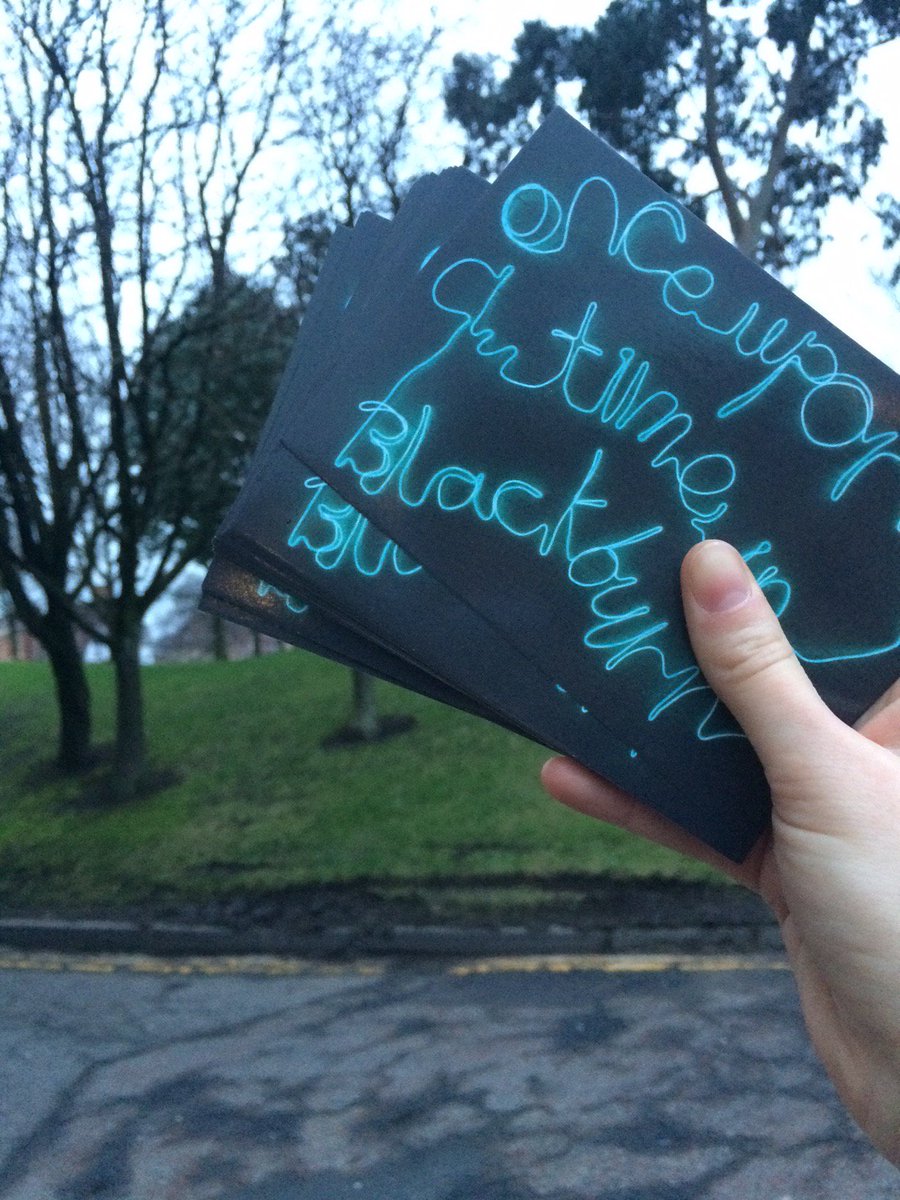 once upon
a time in
Blackburn